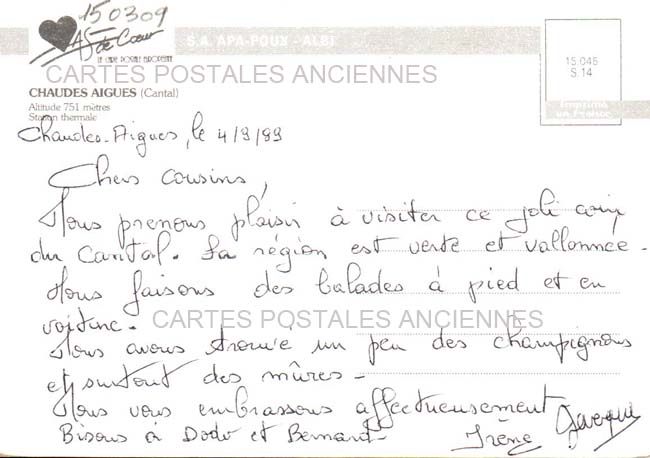 150309
As de Cœur
LA CARTE POSTALE EUROPEENNE
S.A. APA-POUX - ALBI
15.045
S.14
Imprimé
en France
CARTES POSTALES ANCIENNES
CHAUDES AIGUES (Cantal)
Altitude 751 mètres
Station thermale
Chaudes-Aigues, le 4/9/99
Chers cousins,
Nous prenons plaisir à visiter ce joli coin
du Cantal. La région est verte et vallonnée.
Nous faisons des balades à pied et en
voiture.
CARTES POSTALES ANCIENNES
Nous avons trouvé un peu des champignons
et surtout des mûres-
Nous vous embrassons affectueusement
Bisous à Dodo et Bernard- Irène